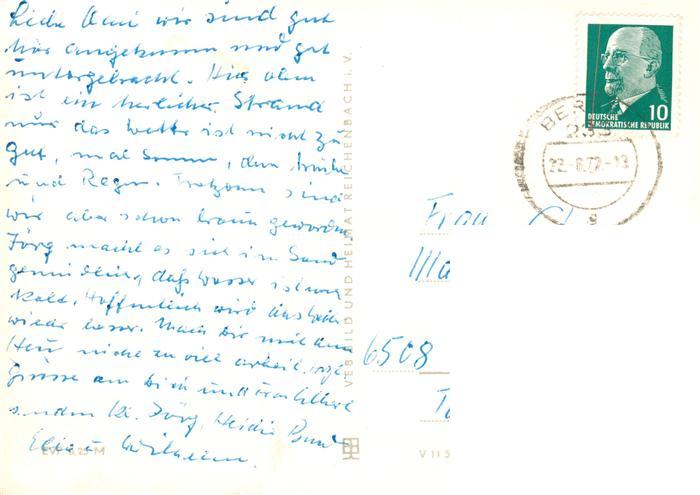 wir sind gut
hier angekommen und gut
untergebracht. Hier oben
ist ein herlicher Strand
nur das Wetter ist nicht zu
gut, mal Sonne, dann
und Regen. Trotzdem sind
wir aber schon braun geworden
Jörg macht es sich im Sand
gemütlich, das Wasser ist
kalt. Hoffentlich wird das
wieder besser. Mach Dir mit dem
Heu nicht zu viel Arbeit.
Grüsse an Dich und
senden Jörg, Heidi
Wilhelm.
EVP 0,25 M
VEB BILD UND HEIMAT REICHENBACH i. V.
10
DEUTSCHE
DEMOKRATISCHE REPUBLIK
BER
22.-6.72-13
g
Frau
Ma
6508
V 11 5